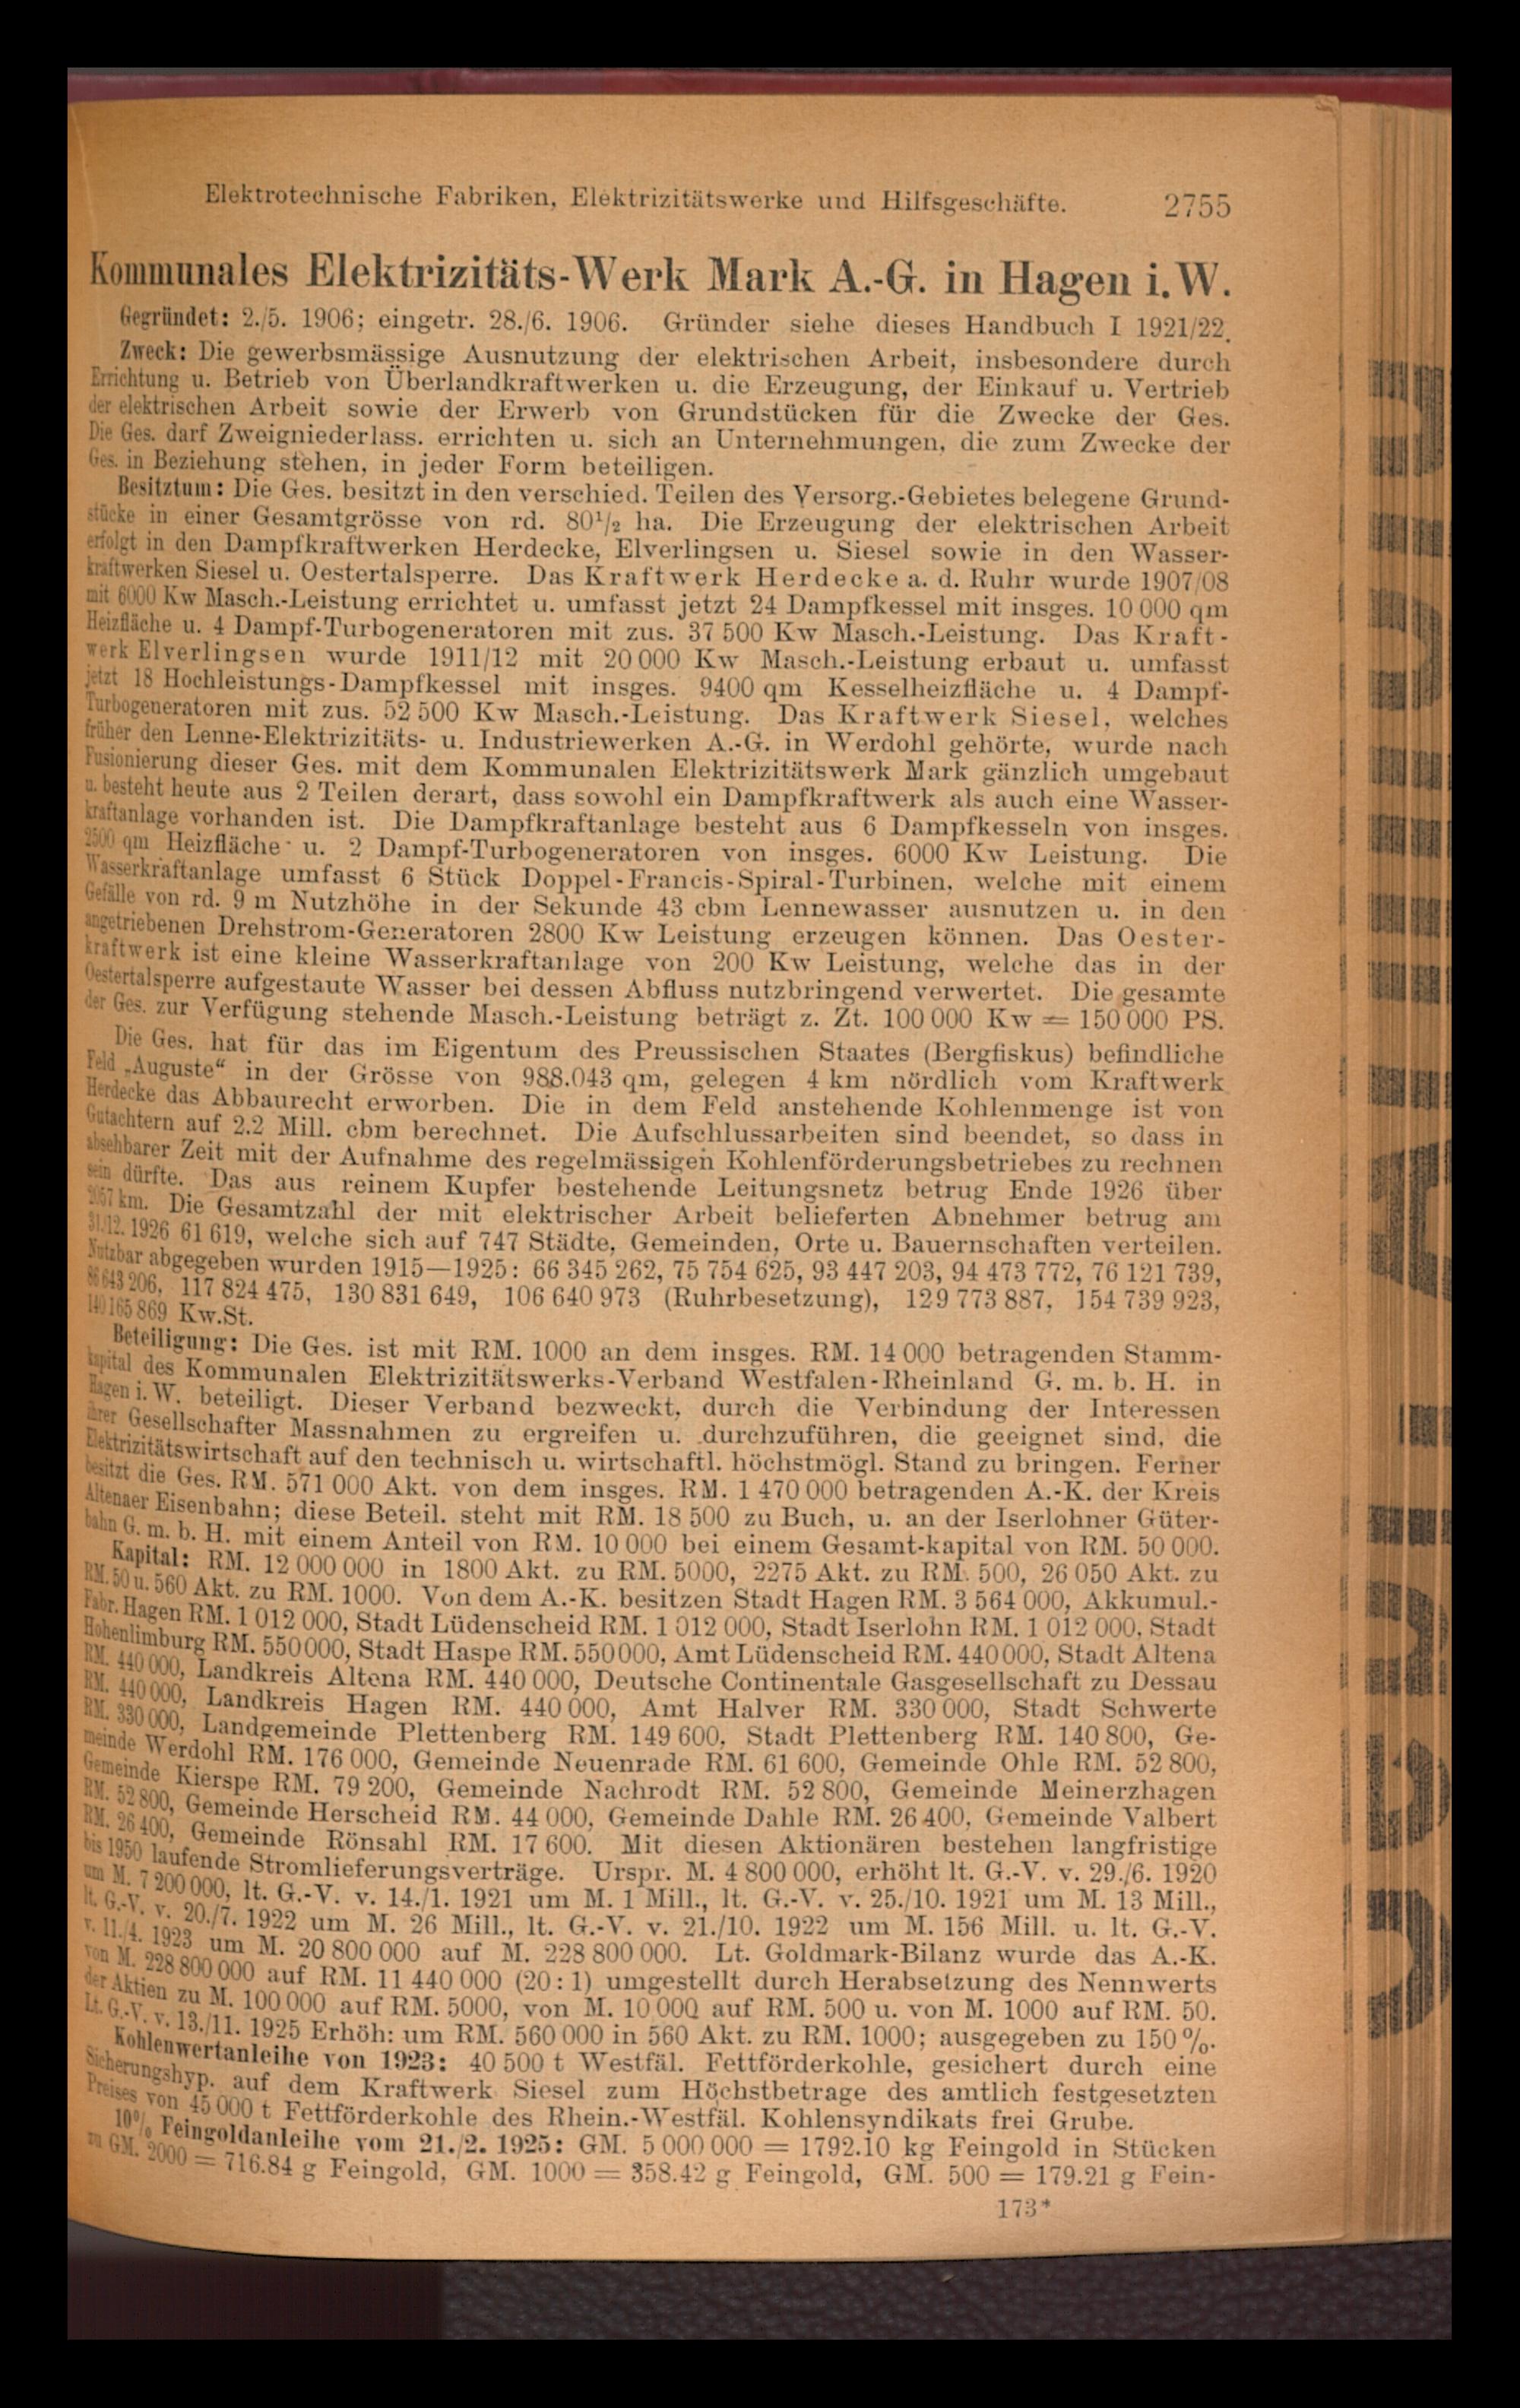 Elektrotechnische Fabriken, Elektrizitätswerke und Hilfsgeschäfte. 2755
Kommunales Elektrizitäts-Werk Mark A.-G. in Hagen i. W.
Gegründet: 2./5. 1906; eingetr. 28./6. 1906. Gründer siehe dieses Handbuch I 1921/22.
Zweck: Die gewerbsmässige Ausnutzung der elektrischen Arbeit, insbesondere durch
Errichtung u. Betrieb von Überlandkraftwerken u. die Erzeugung, der Einkauf u. Vertrieb
der elektrischen Arbeit sowie der Erwerb von Grundstücken für die Zwecke der Ges.
Die Ges. darf Zweigniederlass. errichten u. sich an Unternehmungen, die zum Zwecke der
Ges. in Beziehung stehen, in jeder Form beteiligen.
Besitztum: Die Ges. besitzt in den verschied. Teilen des Versorg.-Gebietes belegene Grund-
stücke in einer Gesamtgrösse von rd. 80 1/2 ha. Die Erzeugung der elektrischen Arbeit
erfolgt in den Dampfkraftwerken Herdecke, Elverlingsen u. Siesel sowie in den Wasser-
kraftwerken Siesel u. Oestertalsperre. Das Kraftwerk Herdecke a. d. Ruhr wurde 1907/08
mit 6000 Kw Masch.-Leistung errichtet u. umfasst jetzt 24 Dampfkessel mit insges. 10 000 qm
Heizfläche u. 4 Dampf-Turbogeneratoren mit zus. 37 500 Kw Masch.-Leistung. Das Kraft-
werk Elverlingsen wurde 1911/12 mit 20 000 Kw Masch.-Leistung erbaut u. umfasst
jetzt 18 Hochleistungs-Dampfkessel mit insges. 9400 qm Kesselheizfläche u. 4 Dampf-
Turbogeneratoren mit zus. 52 500 Kw Masch.-Leistung. Das Kraftwerk Siesel, welches
früher den Lenne-Elektrizitäts- u. Industriewerken A.-G. in Werdohl gehörte, wurde nach
Fusionierung dieser Ges. mit dem Kommunalen Elektrizitätswerk Mark gänzlich umgebaut
u. besteht heute aus 2 Teilen derart, dass sowohl ein Dampfkraftwerk als auch eine Wasser-
kraftanlage vorhanden ist. Die Dampfkraftanlage besteht aus 6 Dampfkesseln von insges.
2500 qm Heizfläche u. 2 Dampf-Turbogeneratoren von insges. 6000 Kw Leistung. Die
Wasserkraftanlage umfasst 6 Stück Doppel-Francis-Spiral-Turbinen, welche mit einem
Gefälle von rd. 9 m Nutzhöhe in der Sekunde 43 cbm Lennewasser ausnutzen u. in den
angetriebenen Drehstrom-Generatoren 2800 Kw Leistung erzeugen können. Das Oester-
kraftwerk ist eine kleine Wasserkraftanlage von 200 Kw Leistung, welche das in der
Oestertalsperre aufgestaute Wasser bei dessen Abfluss nutzbringend verwertet. Die gesamte
der Ges. zur Verfügung stehende Masch.-Leistung beträgt z. Zt. 100 000 Kw = 150 000 PS.
Die Ges. hat für das im Eigentum des Preussischen Staates (Bergfiskus) befindliche
Feld „Auguste“ in der Grösse von 988.043 qm, gelegen 4 km nördlich vom Kraftwerk
Herdecke das Abbaurecht erworben. Die in dem Feld anstehende Kohlenmenge ist von
Gutachtern auf 2.2 Mill. cbm berechnet. Die Aufschlussarbeiten sind beendet, so dass in
absehbarer Zeit mit der Aufnahme des regelmässigen Kohlenförderungsbetriebes zu rechnen
sein dürfte. Das aus reinem Kupfer bestehende Leitungsnetz betrug Ende 1926 über
km. Die Gesamtzahl der mit elektrischer Arbeit belieferten Abnehmer betrug am
31./12. 1926 61 619, welche sich auf 747 Städte, Gemeinden, Orte u. Bauernschaften verteilen.
Nutzbar abgegeben wurden 1915—1925: 66 345 262, 75 754 625, 93 447 203, 94 473 772, 76 121 739,
86 643 206, 117 824 475, 130 831 649, 106 640 973 (Ruhrbesetzung), 129 773 887, 154 739 923,
140 165 869 Kw.St.
Beteiligung: Die Ges. ist mit RM. 1000 an dem insges. RM. 14 000 betragenden Stamm-
kapital des Kommunalen Elektrizitätswerks-Verband Westfalen-Rheinland G. m. b. H. in
Hagen i. W. beteiligt. Dieser Verband bezweckt, durch die Verbindung der Interessen
ihrer Gesellschafter Massnahmen zu ergreifen u. durchzuführen, die geeignet sind, die
Elektrizitätswirtschaft auf den technisch u. wirtschaftl. höchstmögl. Stand zu bringen. Ferner
besitzt die Ges. RM. 571 000 Akt. von dem insges. RM. 1 470 000 betragenden A.-K. der Kreis
Altenaer Eisenbahn; diese Beteil. steht mit RM. 18 500 zu Buch, u. an der Iserlohner Güter-
bahn G. m. b. H. mit einem Anteil von RM. 10 000 bei einem Gesamt-kapital von RM. 50 000.
Kapital: RM. 12 000 000 in 1800 Akt. zu RM. 5000, 2275 Akt. zu RM. 500, 26 050 Akt. zu
RM. 50 u. 560 Akt. zu RM. 1000. Von dem A.-K. besitzen Stadt Hagen RM. 3 564 000, Akkumul.-
Fabr. Hagen RM. 1 012 000, Stadt Lüdenscheid RM. 1 012 000, Stadt Iserlohn RM. 1 012 000, Stadt
Hohenlimburg RM. 550 000, Stadt Haspe RM. 550 000, Amt Lüdenscheid RM. 440 000, Stadt Altena
RM. 440 000, Landkreis Altena RM. 440 000, Deutsche Continentale Gasgesellschaft zu Dessau
RM. 440 000, Landkreis Hagen RM. 440 000, Amt Halver RM. 330 000, Stadt Schwerte
RM. 330 000, Landgemeinde Plettenberg RM. 149 600, Stadt Plettenberg RM. 140 800, Ge-
meinde Werdohl RM. 176 000, Gemeinde Neuenrade RM. 61 600, Gemeinde Ohle RM. 52 800,
Gemeinde Kierspe RM. 79 200, Gemeinde Nachrodt RM. 52 800, Gemeinde Meinerzhagen
RM. 52 800, Gemeinde Herscheid RM. 44 000, Gemeinde Dahle RM. 26 400, Gemeinde Valbert
RM. 26 400, Gemeinde Rönsahl RM. 17 600. Mit diesen Aktionären bestehen langfristige
bis 1950 laufende Stromlieferungsverträge. Urspr. M. 4 800 000, erhöht lt. G.-V. v. 29./6. 1920
um M. 7 200 000, lt. G.-V. v. 14./1. 1921 um M. 1 Mill., lt. G.-V. v. 25./10. 1921 um M. 13 Mill.,
lt. G.-V. v. 20./7. 1922 um M. 26 Mill., lt. G.-V. v. 21./10. 1922 um M. 156 Mill. u. lt. G.-V.
v. 11./4. 1923 um M. 20 800 000 auf M. 228 800 000. Lt. Goldmark-Bilanz wurde das A.-K.
von M. 228 800 000 auf RM. 11 440 000 (20 : 1) umgestellt durch Herabsetzung des Nennwerts
der Aktien zu M. 100 000 auf RM. 5000, von M. 10 000 auf RM. 500 u. von M. 1000 auf RM. 50.
Lt. G.-V. v. 13./11. 1925 Erhöh: um RM. 560 000 in 560 Akt. zu RM. 1000; ausgegeben zu 150 %.
Kohlenwertanleihe von 1923: 40 500 t Westfäl. Fettförderkohle, gesichert durch eine
Sicherungshyp. auf dem Kraftwerk Siesel zum Höchstbetrage des amtlich festgesetzten
Preises von 45 000 t Fettförderkohle des Rhein.-Westfäl. Kohlensyndikats frei Grube.
10% Feingoldanleihe vom 21./2. 1925: GM. 5 000 000 = 1792.10 kg Feingold in Stücken
zu GM. 2000 = 716.84 g Feingold, GM. 1000 = 358.42 g Feingold, GM. 500 = 179.21 g Fein-
173*